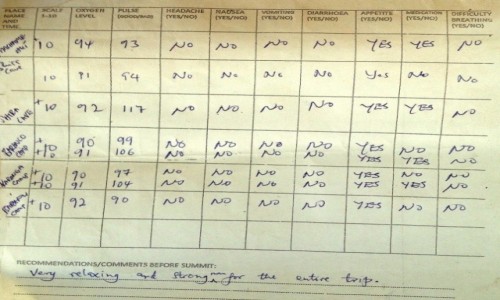 PLACE NAME AND TIME SCALE 1-10 OXYGEN LEVEL PULSE HEADACHE (YES/NO) NAUSEA (YES/NO) VOMITING (YES/NO) DIARRHOEA (YES/NO) APPETITE (YES/NO) MEDICATION (YES/NO) DIFFICULTY BREATHING (YES/NO)
+10 94 93 NO NO NO NO YES YES NO
10 91 94 No No No NO Yes No NO
+10 92 117 NO NO. NO NO YES YES NO
+10 90 99 NO NO NO NO YES NO NO
+10 91 106 NO NO NO NO YES YES NO
+10 90 97 NO NO NO NO YES NO NO
+10 91 104 NO NO NO NO YES YES NO
+10 92 90 NO NO NO NO YES NO NO
RECOMMENDATIONS/COMMENTS BEFORE SUMMIT:
Very relaxing and strong for the entire trip.